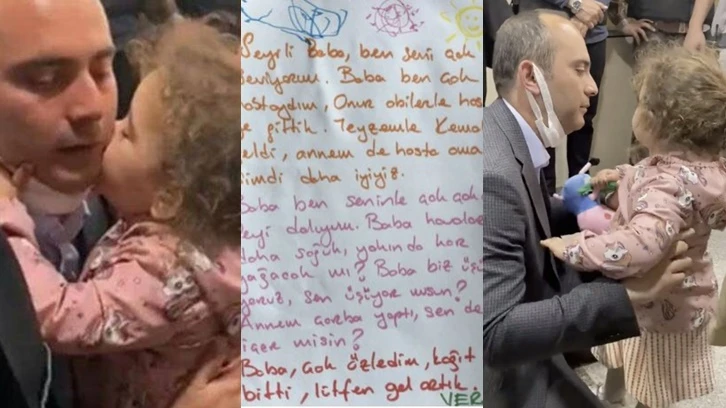 Sevgili Baba, ben seni çok
seviyorum. Baba ben çok
hastaydım, Onur abilerle has
e gittik. Teyzemle Kema
eldi, annem de hasta ama
şimdi daha iyiyiz.
Baba ben seninle çok çok
şeyi doluyum. Baba havalar
daha soğuk, yakında kar
yağacak mı? Baba biz üşü
yoruz, sen üşüyor musun?
Annem çorba yaptı, sen de
içer misin?
Baba, çok özledim, kağıt
bitti, lütfen gel artık.
VER